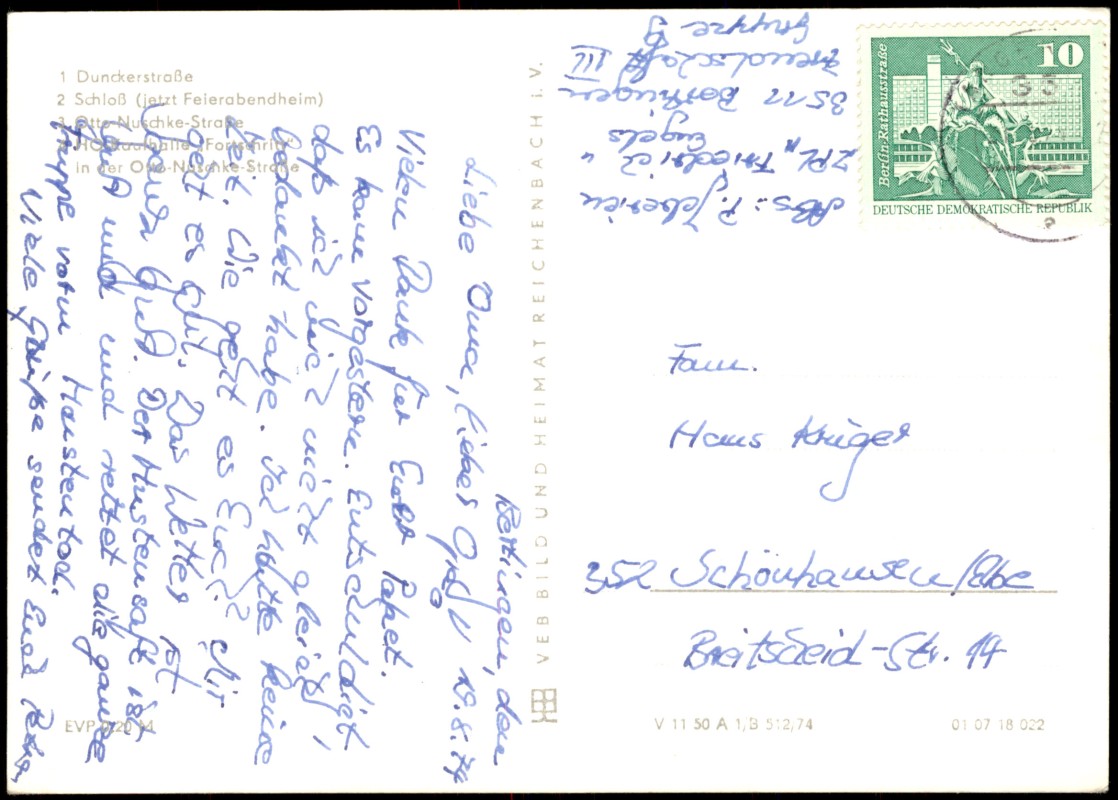 1 Dunckerstraße
2 Schloß (jetzt Feierabendheim)
3 Otto-Nuschke-Straße
4 HO-Kaufhalle „Fortschritt"
in der Otto-Nuschke-Straße
den 19.8.74
Liebe Oma, lieber Opa!
Vielen Dank für Euer Paket.
Es kam vorgestern. Entschuldigt,
daß ich mich nicht gleich
bedankt habe. Ich hatte keine
Zeit. Wie geht es Euch? Mir
geht es gut. Das Wetter ist
Der Hustensaft ist
und rettet die ganze
Truppe vorm Hustentod.
Viele Grüße sendet Euch Petra
EVP 0,20 M
VEB BILD UND HEIMAT REICHENBACH i. V.
Abs.: P.
ZPL „Friedrich
Engels"
3511
Freundschaft III
Gruppe 9
10
Berlin-Rathausstraße
DEUTSCHE DEMOKRATISCHE REPUBLIK
Fam.
Hans Krüger
352 Schönhausen/Elbe
Breitscheid-Str. 14
V 11 50 A 1/B 512/74
01 07 18 022